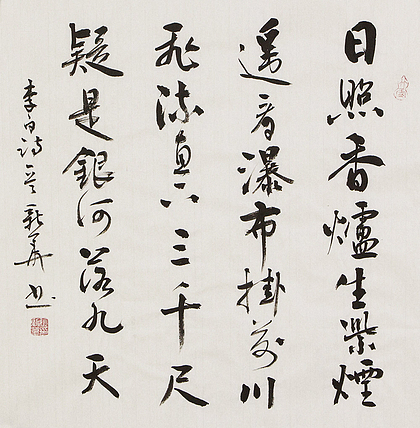 日照香爐生紫煙
遥看瀑布掛前川
飛流直下三千尺
疑是銀河落九天
李白詩